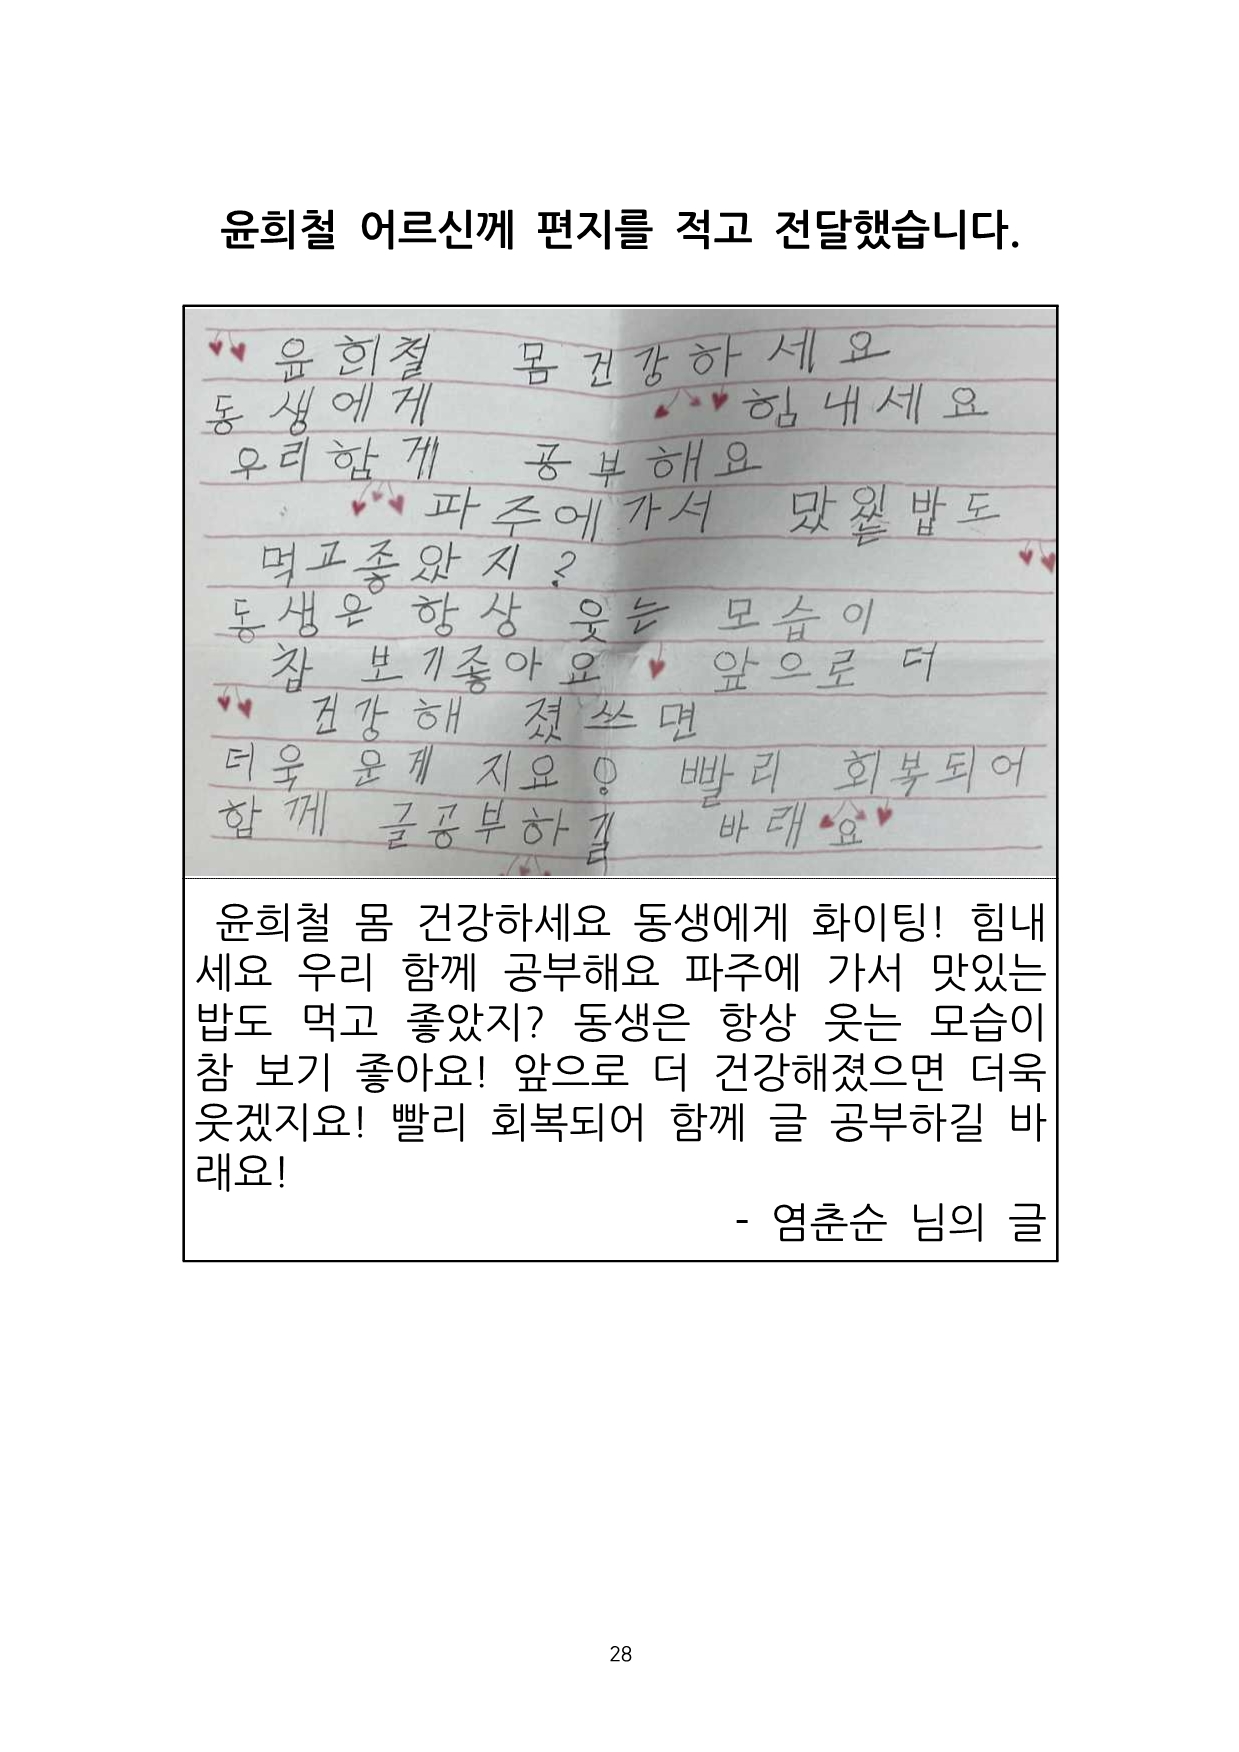 윤희철 어르신께 편지를 적고 전달했습니다.
윤희철 몸건강하세요
동생에게 힘내세요
우리함게 공부해요
파주에가서 맜있는밥도
먹고좋았지?
동생은 항상 웃는 모습이
참 보기좋아요 앞으로 더
건강해 졌쓰면
더욱 운게지요! 빨리 회복되어
함께 글공부하길 바래요
윤희철 몸 건강하세요 동생에게 화이팅! 힘내
세요 우리 함께 공부해요 파주에 가서 맛있는
밥도 먹고 좋았지? 동생은 항상 웃는 모습이
참 보기 좋아요! 앞으로 더 건강해졌으면 더욱
웃겠지요! 빨리 회복되어 함께 글 공부하길 바
래요!
- 염춘순 님의 글
28